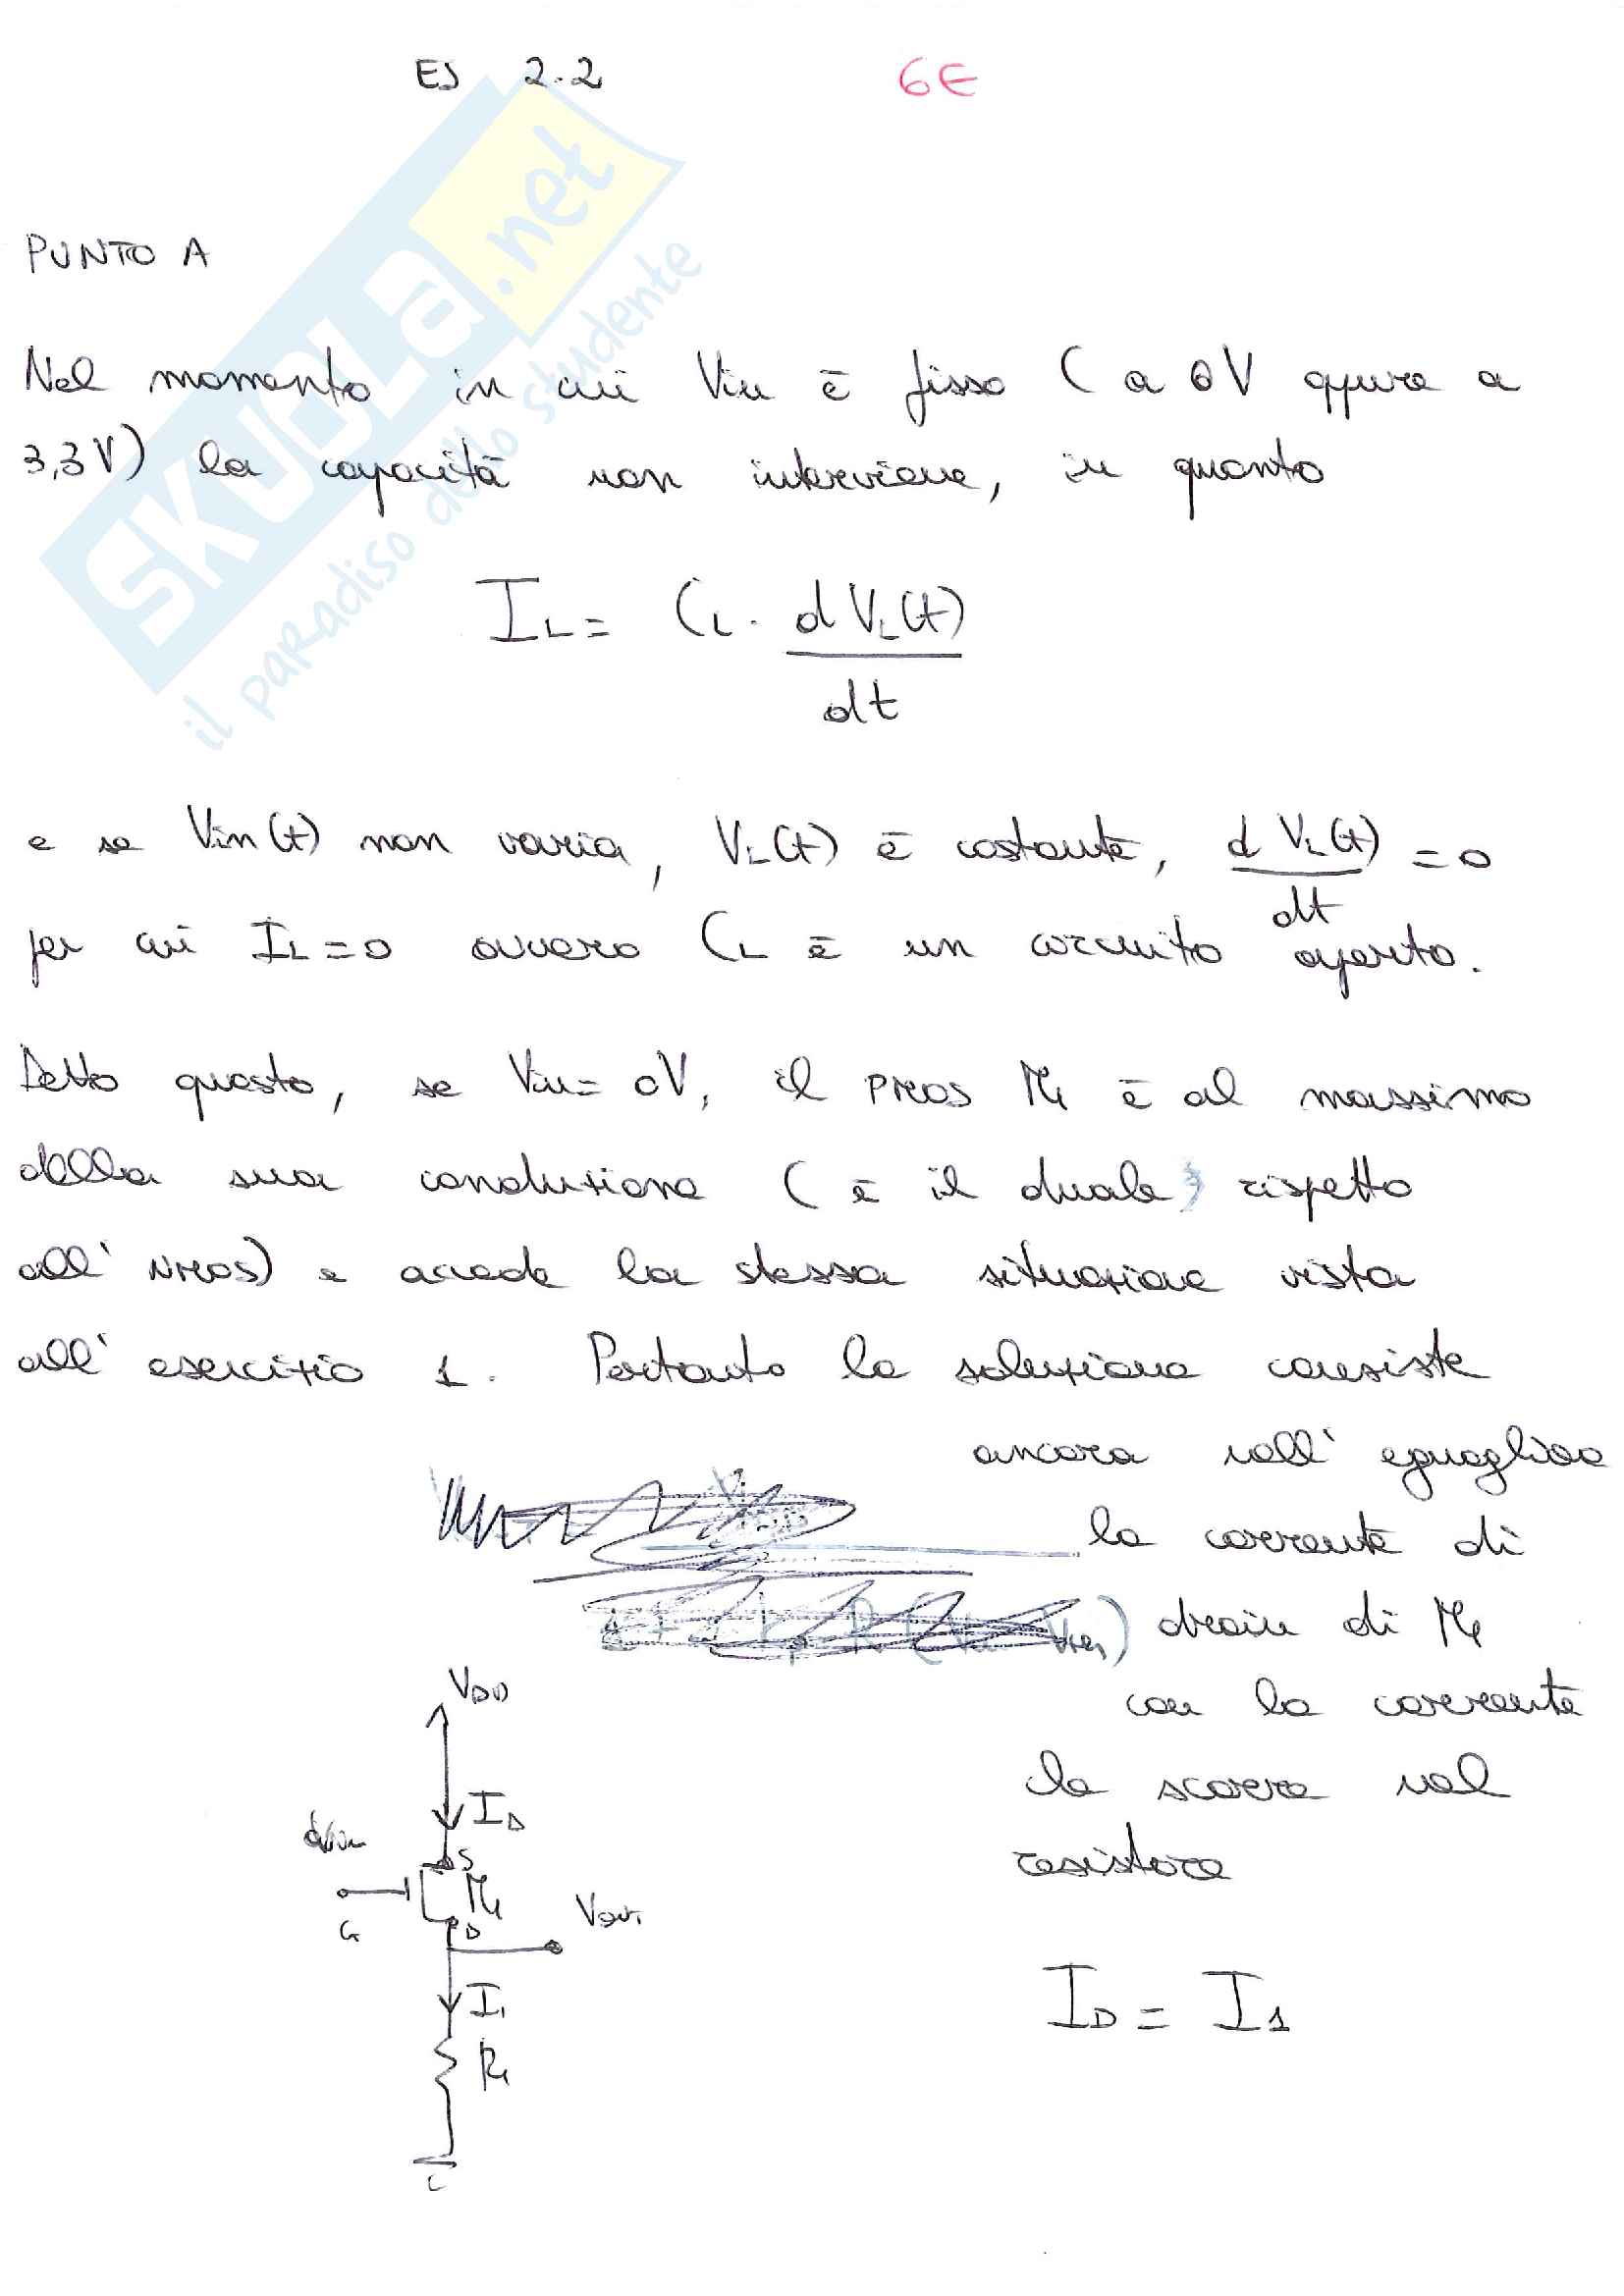 ES 2.2 6E
SKUOLA.net
il paradiso dello studente
PUNTO A
Nel momento in cui Vin è fisso ( a 0V oppure a
3,3V) la capacità non interviene, in quanto
IL = CL . dVL(t)
dt
e se Vin(t) non varia, VL(t) è costante, dVL(t) = 0
dt
per cui IL=0 ovvero CL è un circuito aperto.
Detto questo, se Vin= 0V, il PMOS M1 è al massimo
della sua conduzione ( è il duale rispetto
all' NMOS) e accade la stessa situazione vista
all' esercizio 1. Pertanto la soluzione consiste
ancora nell' eguagliare
la corrente di
drain di M1
con la corrente
che scorre nel
resistore
ID = I1
VDD
ID
Vin
S
M1
G
D
Vout
I1
R1